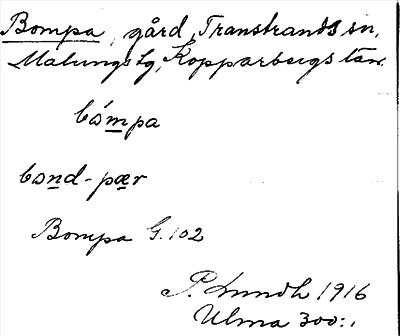 Bompa, gård, Transtrands sn,
Malungs tg, Kopparbergs län.
bómpa
bond-pær
Bompa G.102
P. Lundh 1916
Ulma 300:1